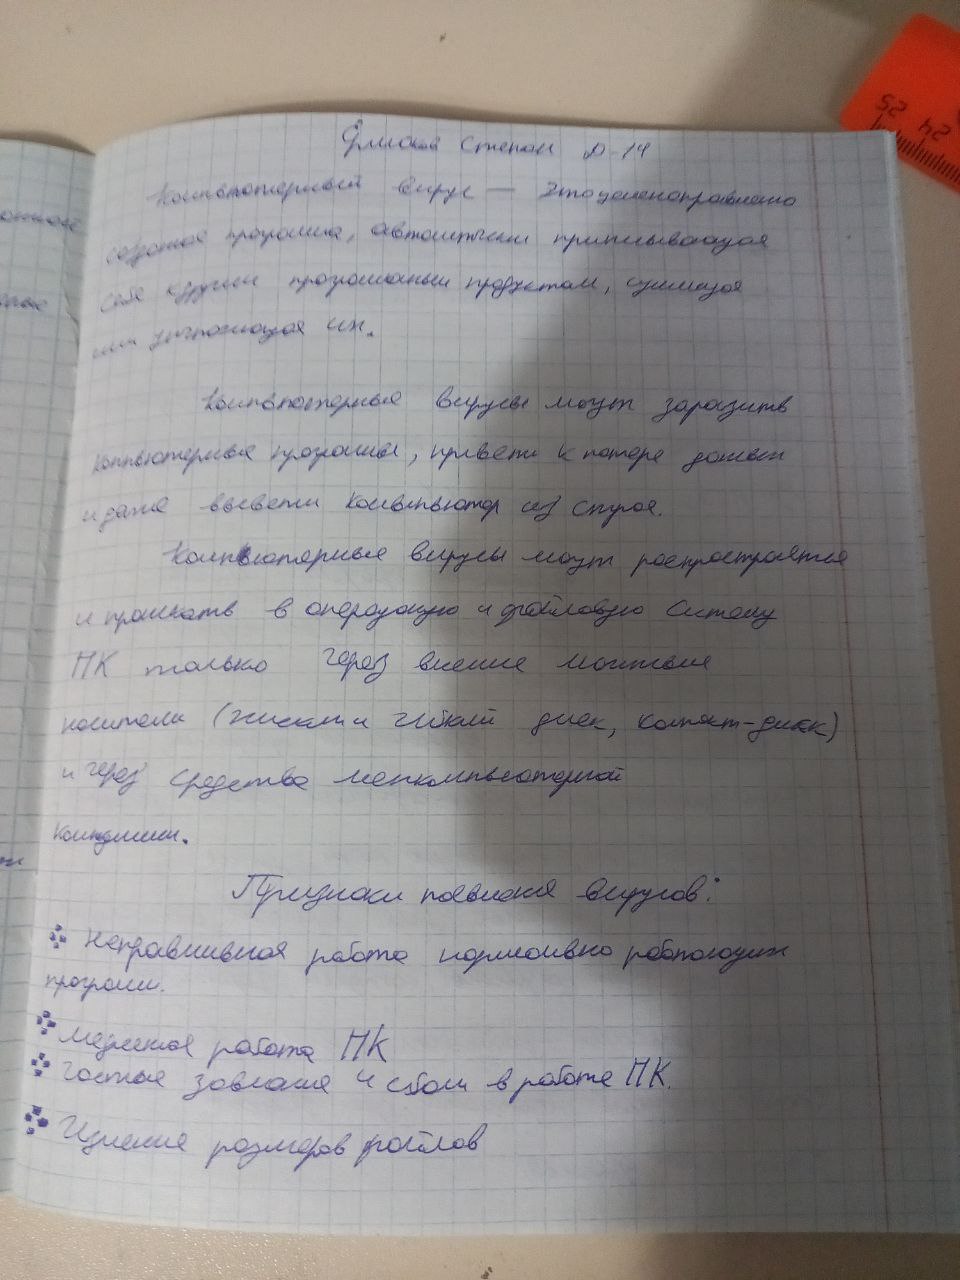 Степан Д-14
Компьютерный вирус — это целенаправлено
созданая программа, автоматически приписывающая
себя к другим програмным продуктам, изменяя
или уничтожающая их.
Компьютерные вирусы могут заразить
компьютерные програмы, привести к потере даных
и даже вывести компьютор из строя.
Компьютерные вирусы могут роспростроятся
и проникать в операционую и файловую систему
ПК только через внешние магнитные
носители (жиский и гибкий диск, компакт-диск)
и через средства межкомпьютерной
комуникации.
Признаки появления вирусов:
Неправильная работа нормально работающих
програм.
медленая работа ПК
Частые зависания и сбои в работе ПК.
Изменение размеров файлов
52
24